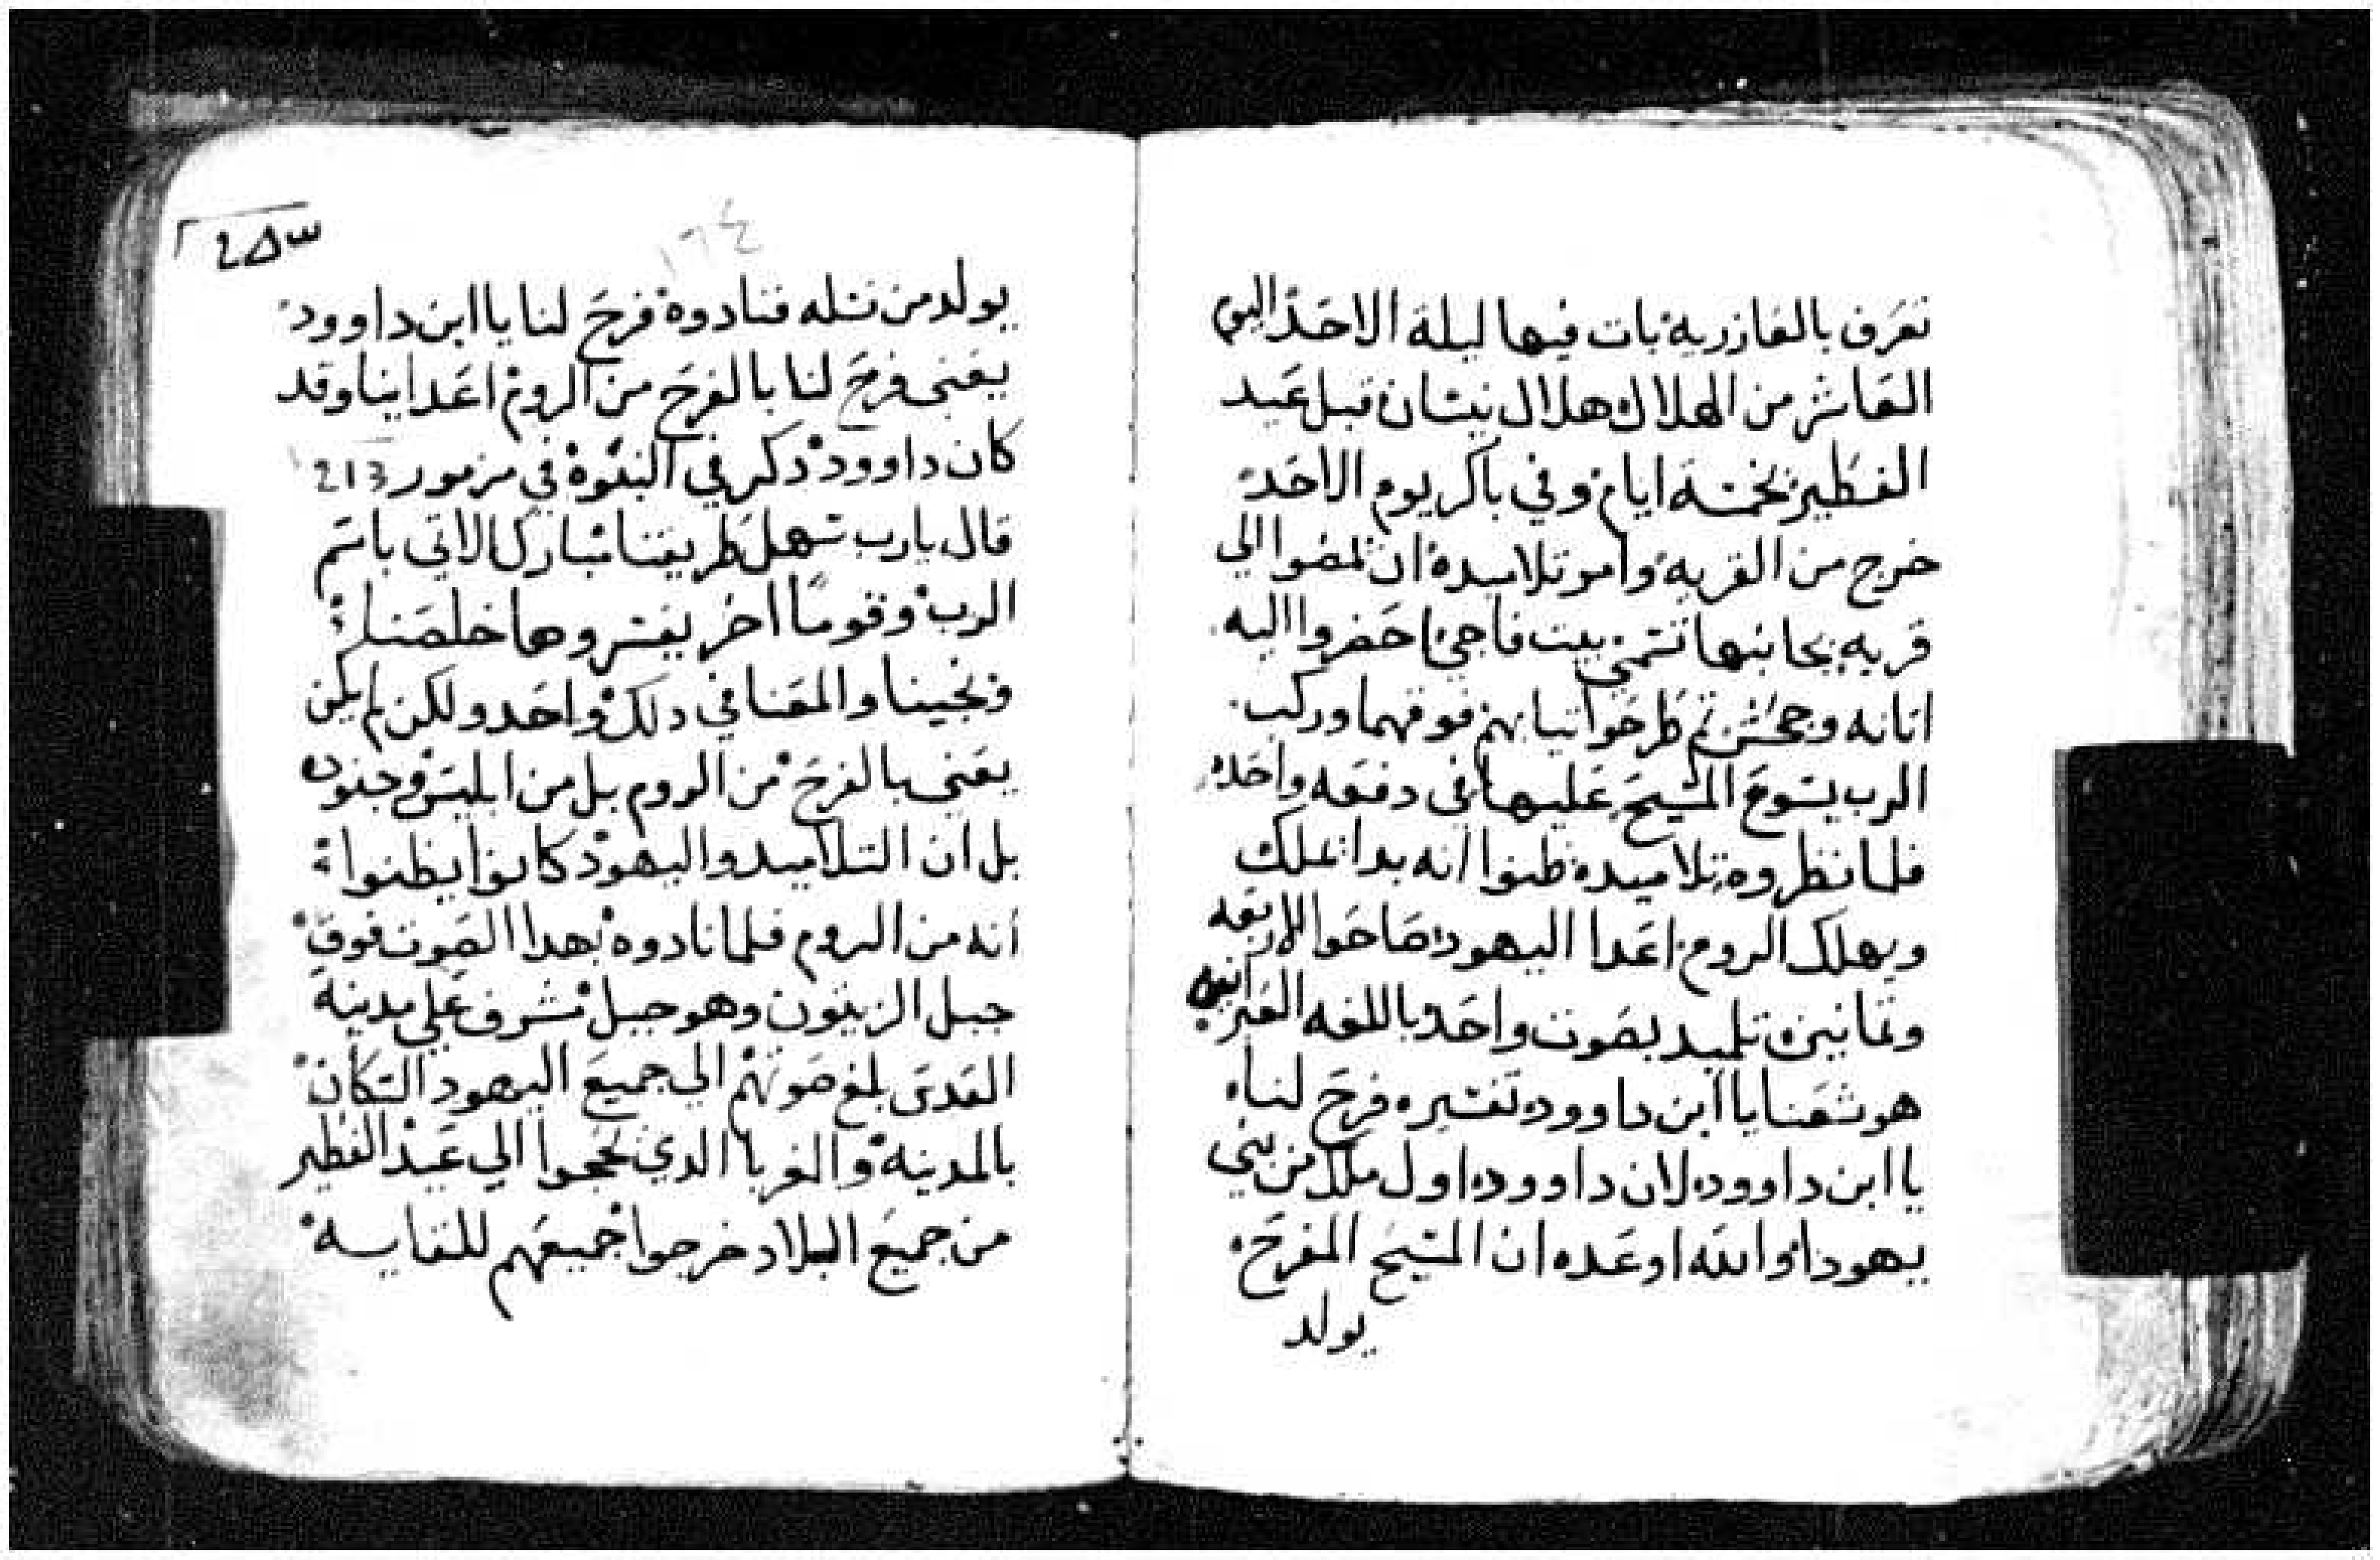 تعرف بالعازريه بات فيها ليلة الاحد اليوم
العاشر من الهلال هلال نيسان قبل عيد
الفطير بخمسة ايام وفي باكر يوم الاحد
خرج من القريه وامر تلاميده ان يمضوا الي
قريه بجانبها تسمي بيت فاجي احضروا اليه
اتانه وجحش تم طرحوا تيابهم فوقهما وركب
الرب يسوع المسيح عليهما في دفعه واحده
فلما نظروه تلاميده ظنوا انه بدا يملك
ويهلك الروم اعدا اليهود صاحوا الاربعه
وتمانين تلميد بصوت واحد باللغه العبرانيه
هوشعنا يا ابن داوود تفسيره فرح لنا
يا ابن داوود لان داوود اول ملك من بني
يهودا والله اوعده ان المسيح المفرح
يولد
١٦٤
يولد من نسله فنادوه فرح لنا يا ابن داوود
يعني فرح لنا بالفرح من الروم اعداينا وقد
كان داوود دكر في النبوة في مزمور 213
قال يارب سهل طريقنا مبارك الاتي باسم
الرب وقوما اخر يفسروها خلصنا
ونجينا والمعنا في دلك واحد ولكن لم يكن
يعني بالفرح من الروم بل من ابليس وجنوده
بل ان التلاميد واليهود كانوا يظنوا
انه من الروم فلما نادوه بهدا الصوت فوق
جبل الزيتون وهو جبل مشرف علي مدينة
القدس بلغ صوتهم الي جميع اليهود السكان
بالمدينه والغربا الدي يحجوا الي عيد الفطير
من جميع البلاد خرجوا جميعهم للقايسه